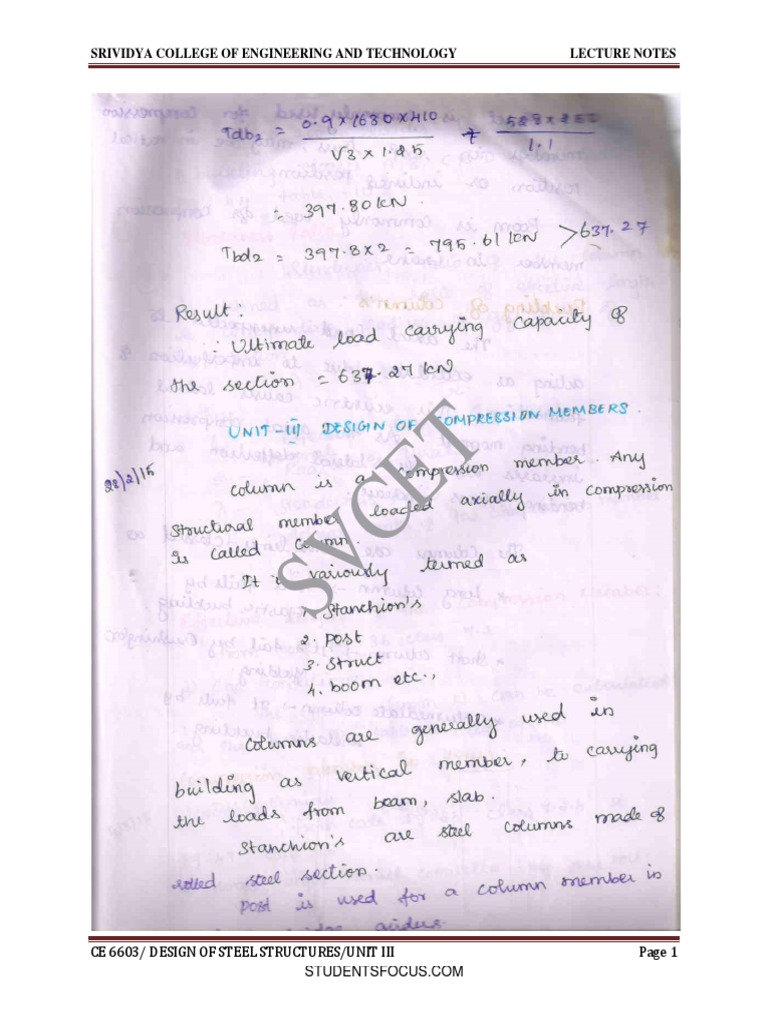 SRIVIDYA COLLEGE OF ENGINEERING AND TECHNOLOGY LECTURE NOTES
Tdb2 = 0.9 x 1630 x 410 / √3 x 1.25 + 528 x 250 / 1.1
= 397.80 kN.
Tbd2 = 397.8 x 2 = 795.61 kN > 637.27
Result:
∴ Ultimate load carrying capacity of
the section = 637.27 kN
UNIT-III DESIGN OF COMPRESSION MEMBERS.
22/2/15
column is a compression member. Any
structural member loaded axially in compression
is called column.
It is variously termed as
1. Stanchion's
2. post
3. struct
4. boom etc.,
columns are generally used in
building as vertical member, to carrying
the loads from beam, slab.
Stanchion's are steel columns made of
rolled steel section.
post is used for a column member in
SVCET
CE 6603/ DESIGN OF STEEL STRUCTURES/UNIT III Page 1
STUDENTSFOCUS.COM